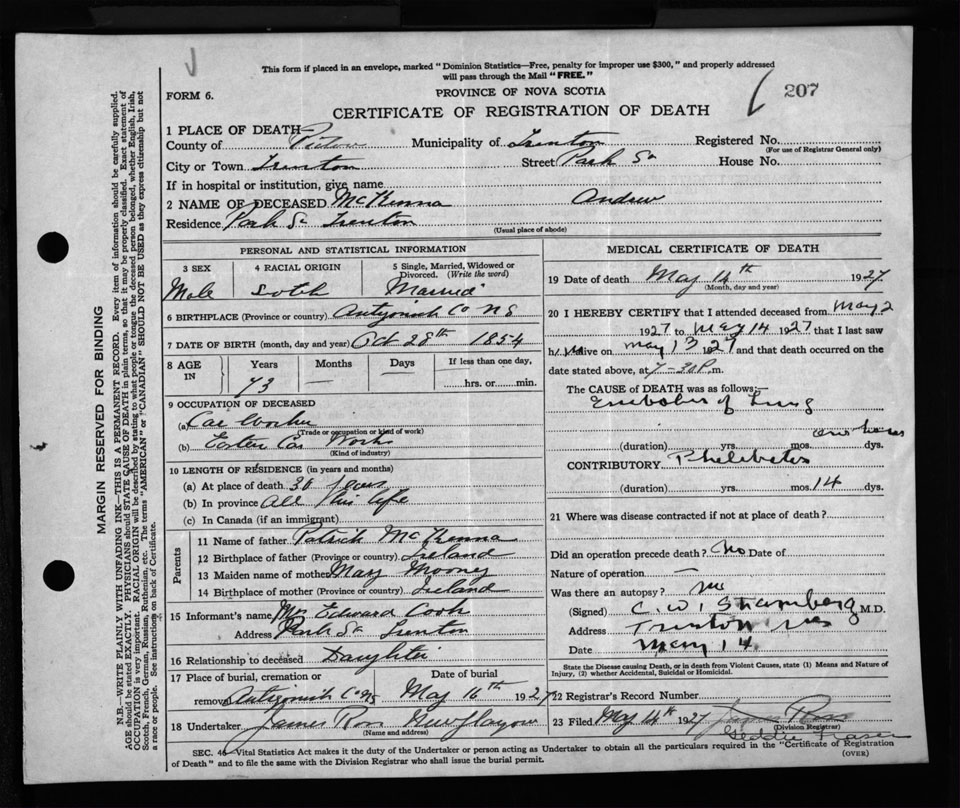 This form if placed in an envelope, marked "Dominion Statistics—Free, penalty for improper use $300," and properly addressed
will pass through the Mail "FREE."
FORM 6.
PROVINCE OF NOVA SCOTIA
207
CERTIFICATE OF REGISTRATION OF DEATH
1 PLACE OF DEATH—
County of Pictou Municipality of Trenton Registered No.
(For use of Registrar General only)
City or Town Trenton Street Park St House No.
If in hospital or institution, give name
2 NAME OF DECEASED McKenna Andrew
Residence Park St Trenton
(Usual place of abode)
PERSONAL AND STATISTICAL INFORMATION
3 SEX 4 RACIAL ORIGIN 5 Single, Married, Widowed or
Divorced. (Write the word)
Male Scotch Married
6 BIRTHPLACE (Province or country) Antigonish Co NS
7 DATE OF BIRTH (month, day and year) Oct 28th 1854
8 AGE IN Years Months Days If less than one day,
73 hrs. or min.
9 OCCUPATION OF DECEASED
(a) Car Worker
(Trade or occupation or kind of work)
(b) Eastern Car Works
(Kind of industry)
10 LENGTH OF RESIDENCE (in years and months)
(a) At place of death 30 years
(b) In province All his life
(c) In Canada (if an immigrant)
Parents
11 Name of father Patrick McKenna
12 Birthplace of father (Province or country) Ireland
13 Maiden name of mother Mary Mooney
14 Birthplace of mother (Province or country) Ireland
15 Informant's name Mrs Edward Cook
Address Park St Trenton
16 Relationship to deceased Daughter
17 Place of burial, cremation or Date of burial
removal Antigonish Co NS May 16th 1927
18 Undertaker James Ross New Glasgow
(Name and address)
MEDICAL CERTIFICATE OF DEATH
19 Date of death May 14th 1927
(Month, day and year)
20 I HEREBY CERTIFY that I attended deceased from May 2
1927 to May 14 1927 that I last saw
him alive on May 13 1927 and that death occurred on the
date stated above, at 7-30 P.m.
The CAUSE of DEATH was as follows:—
Embolus of Lung
(duration) yrs. mos. dys.
CONTRIBUTORY Phelebetes
(duration) yrs. mos. 14 dys.
21 Where was disease contracted if not at place of death?
Did an operation precede death? No Date of
Nature of operation —
Was there an autopsy? no
(Signed) C. W. Stramberg M.D.
Address Trenton NS
Date May 14
State the Disease causing Death, or in death from Violent Causes, state (1) Means and Nature of
Injury, (2) whether Accidental, Suicidal or Homicidal.
22 Registrar's Record Number
23 Filed May 14th 1927 James Ross
(Division Registrar)
Geddie Fraser
SEC. 4 Vital Statistics Act makes it the duty of the Undertaker or person acting as Undertaker to obtain all the particulars required in the "Certificate of Registration
of Death" and to file the same with the Division Registrar who shall issue the burial permit.
(OVER)
MARGIN RESERVED FOR BINDING
N.B.—WRITE PLAINLY WITH UNFADING INK—THIS IS A PERMANENT RECORD. Every item of information should be carefully supplied.
AGE should be stated EXACTLY. PHYSICIANS should STATE CAUSE OF DEATH in plain terms, so that it may be properly classified. Exact statement of
OCCUPATION is very important. RACIAL ORIGIN will be described by stating to what people or tongue the deceased person belonged, whether English, Irish,
Scotch, French, German, Russian, Ruthenian, etc. The terms "AMERICAN" or "CANADIAN" SHOULD NOT BE USED as they express citizenship but not
a race or people. See instructions on back of Certificate.